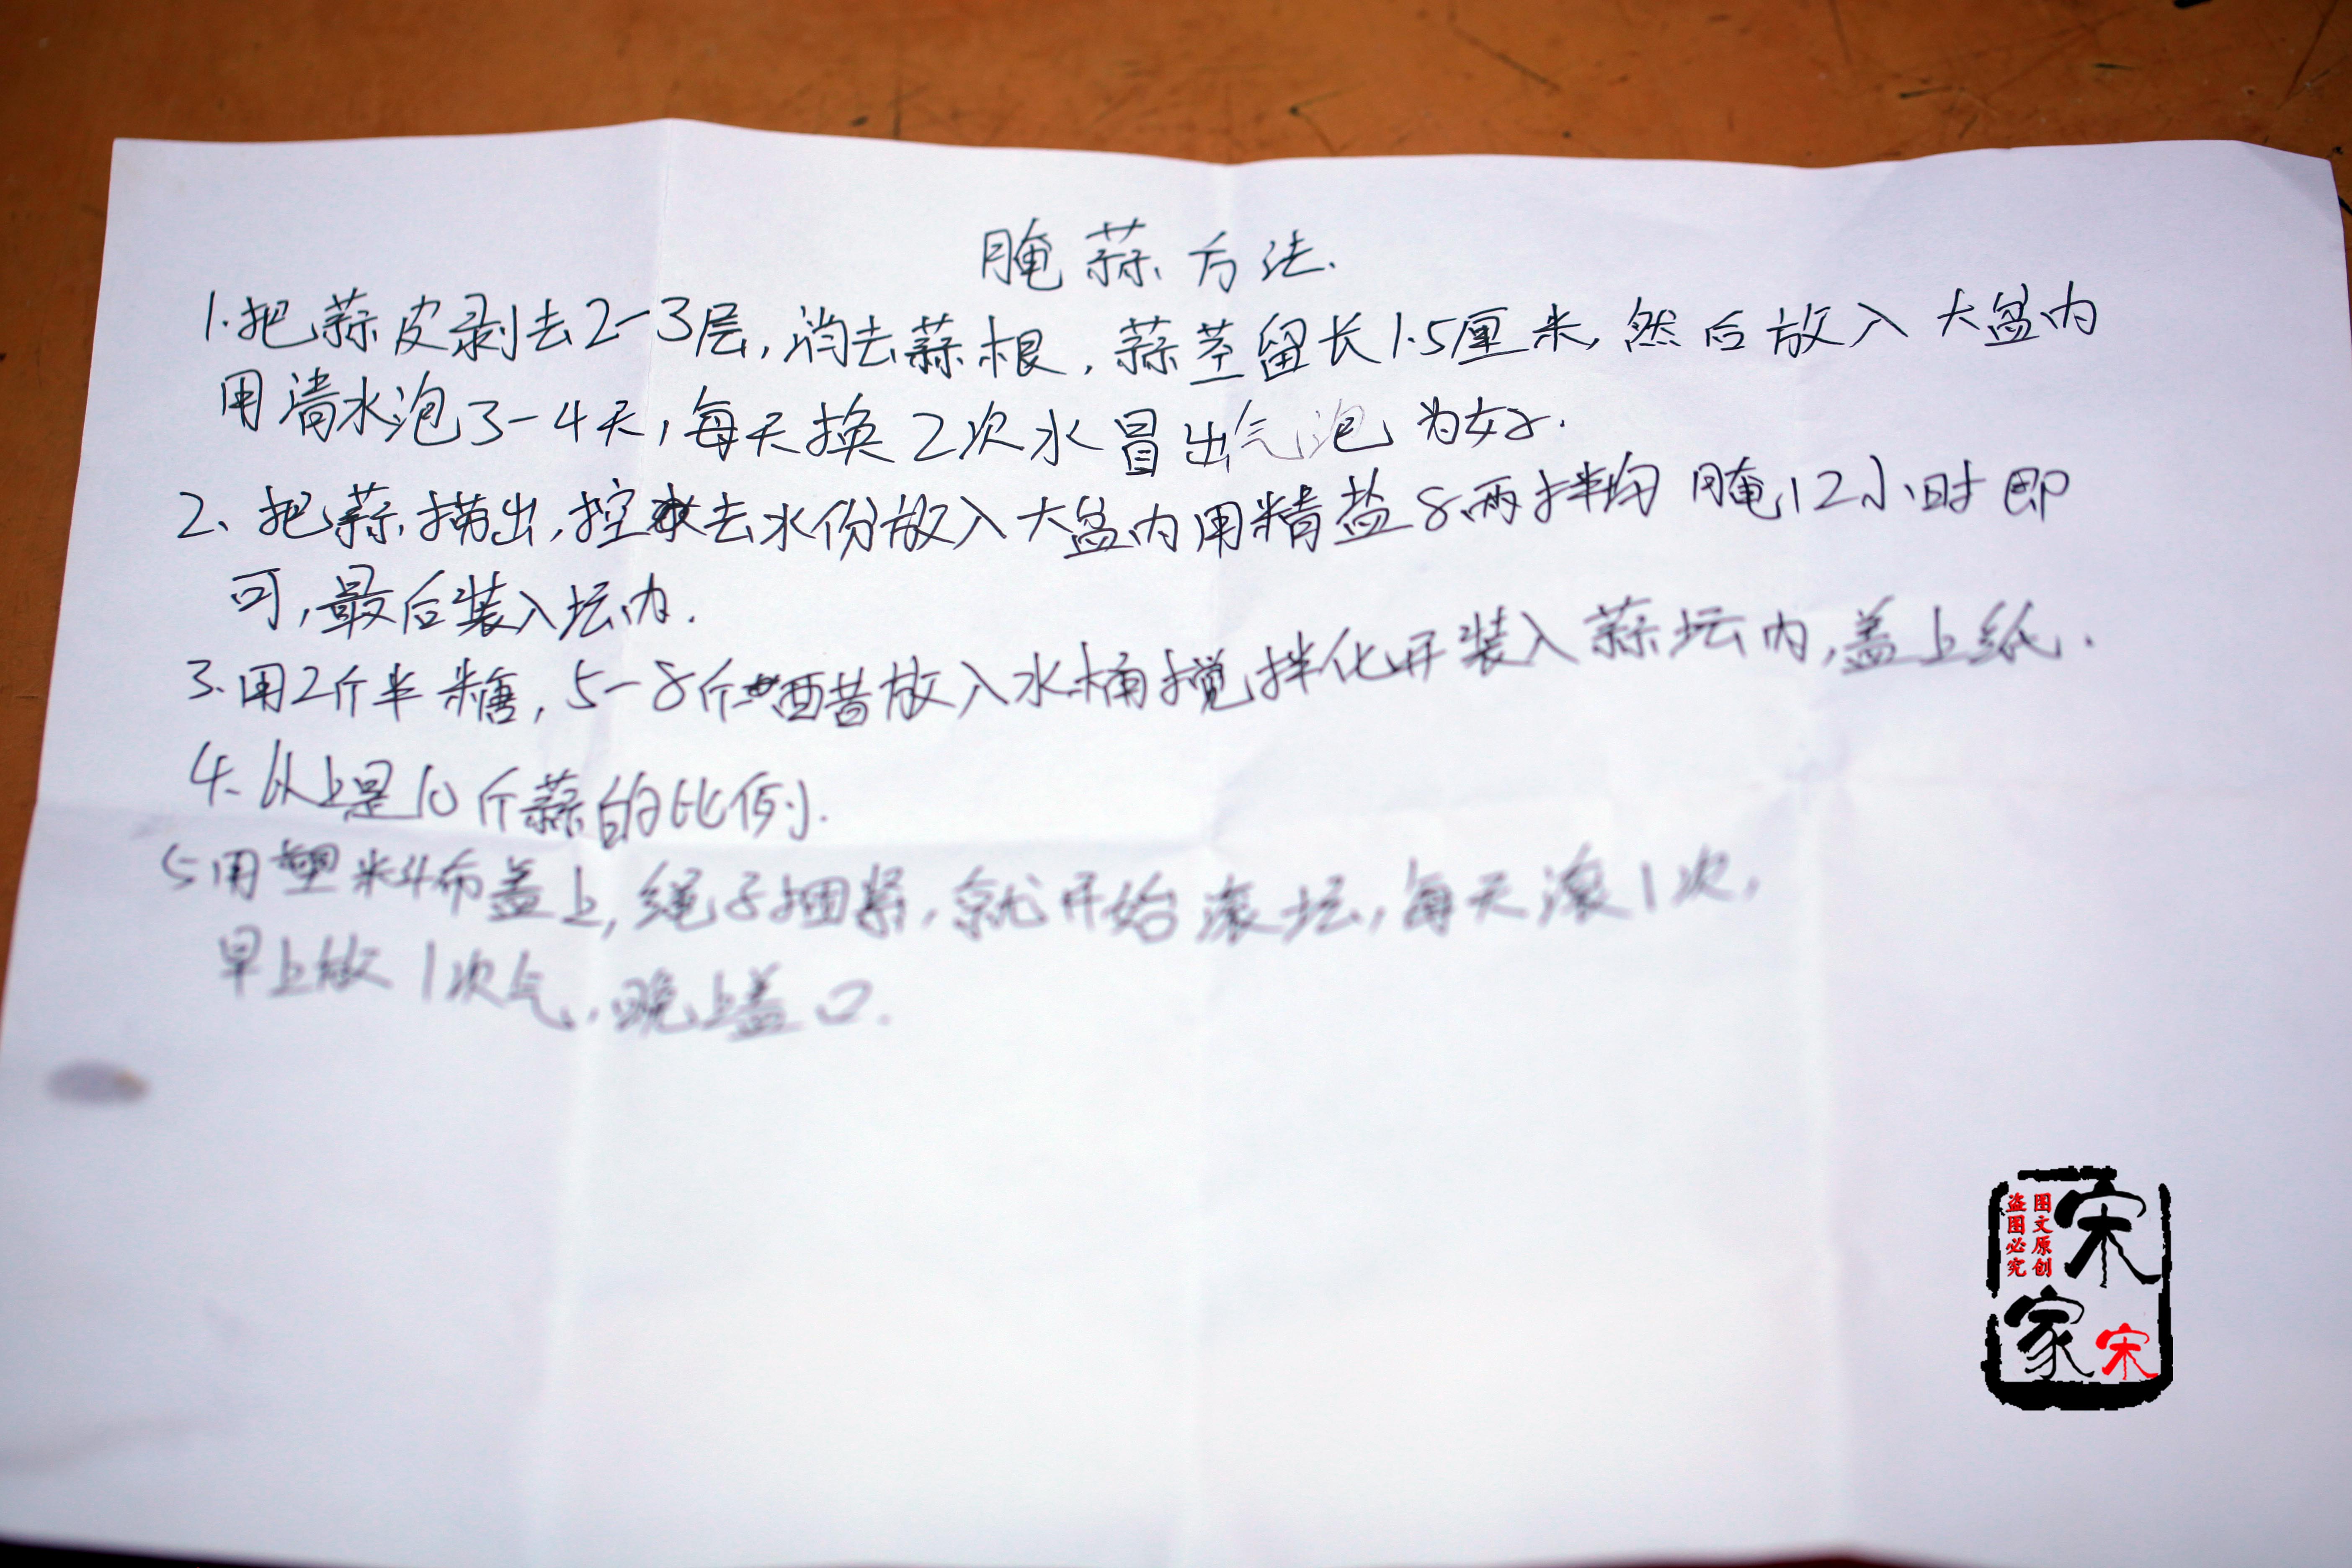 腌蒜方法.
1.把蒜皮剥去2-3层,消去蒜根,蒜茎留长1.5厘米,然后放入大盆内
用清水泡3-4天,每天换2次水冒出气泡为好.
2、把蒜捞出,控去水份放入大盆内用精盐8两拌均腌12小时即
可,最后装入坛内.
3.用2斤半糖,5-8斤醋放入水桶搅拌化开装入蒜坛内,盖上纸.
4、以上是10斤蒜的比例.
5用塑料布盖上,绳子捆紧,就开始滚坛,每天滚1次,
早上放1次气,晚上盖口.
图文原创
盗图必究
宋家
宋